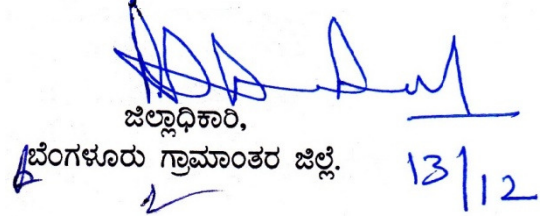 ಜಿಲ್ಲಾಧಿಕಾರಿ,
ಬೆಂಗಳೂರು ಗ್ರಾಮಾಂತರ ಜಿಲ್ಲೆ.
13/12